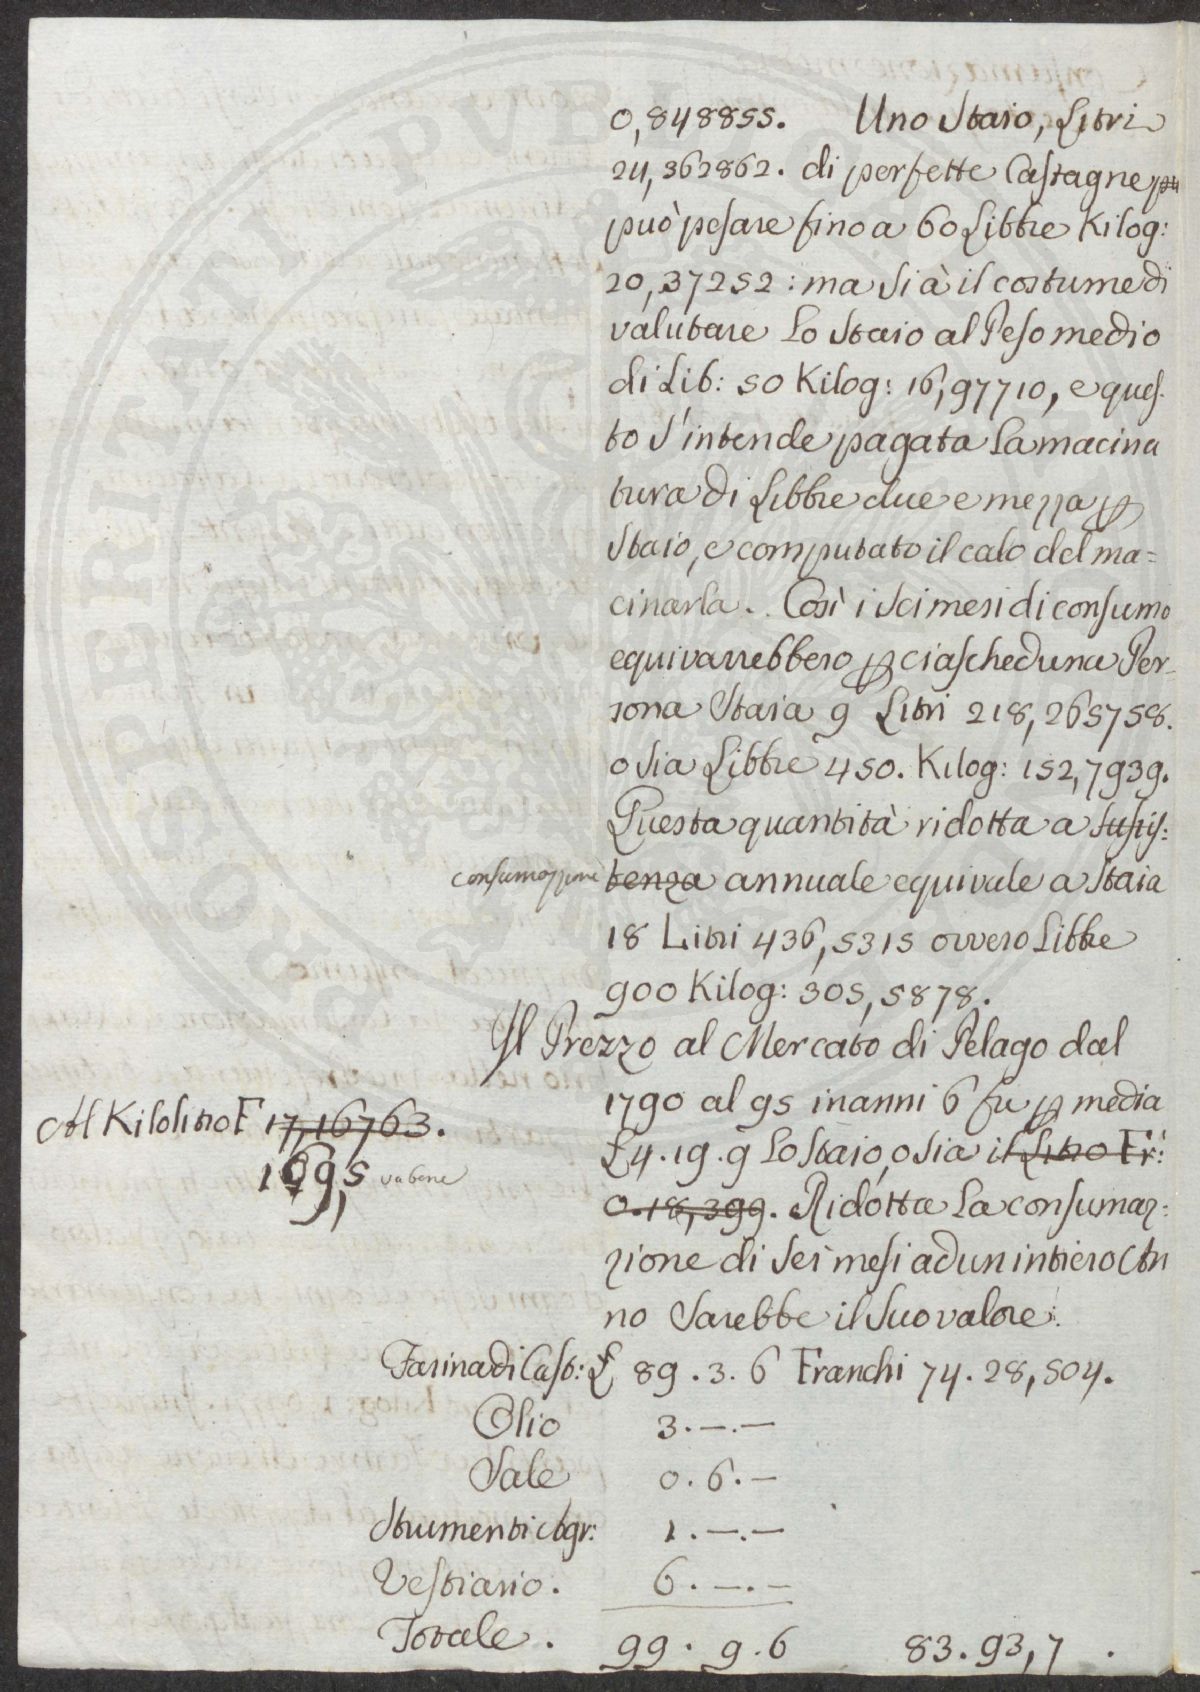 0,848855. Uno Staio, Litri
24,362862. di perfette Castagne
può pesare fino a 60 Libbre Kilog:
20,37252: ma si à il costume di
valutare lo Staio al Peso medio
di Lib: 50 Kilog: 16,97710, e ques-
to s'intende pagata la macina
tura di Libbre due e mezza p
Staio, e computato il calo del ma=
cinarla. Così i sei mesi di consumo
equivarrebbero p ciascheduna Per-
sona Staia 9 Litri 218,265758.
o sia Libbre 450. Kilog: 152,7939.
Questa quantità ridotta a susis:
consumazione tenza annuale equivale a Staia
18 Litri 436,5315 ovvero Libbre
900 Kilog: 305,5878.
Il Prezzo al Mercato di Pelago dal
1790 al 95 in anni 6 fu p media
Al Kilolitro F 17,16763.
£4.19.9 lo Staio, o sia il Litro Fr:
va bene
0.18,399. Ridotta la consumaz:
zione di sei mesi ad un intiero An
no sarebbe il suo valore:
Farina di Cast: £ 89.3.6 Franchi 74.28,504.
Olio 3.—.—
Sale 0.6.—
Strumenti Agr: 1.—.—
Vestiario. 6.—.—
Totale. 99.9.6 83.93,7.